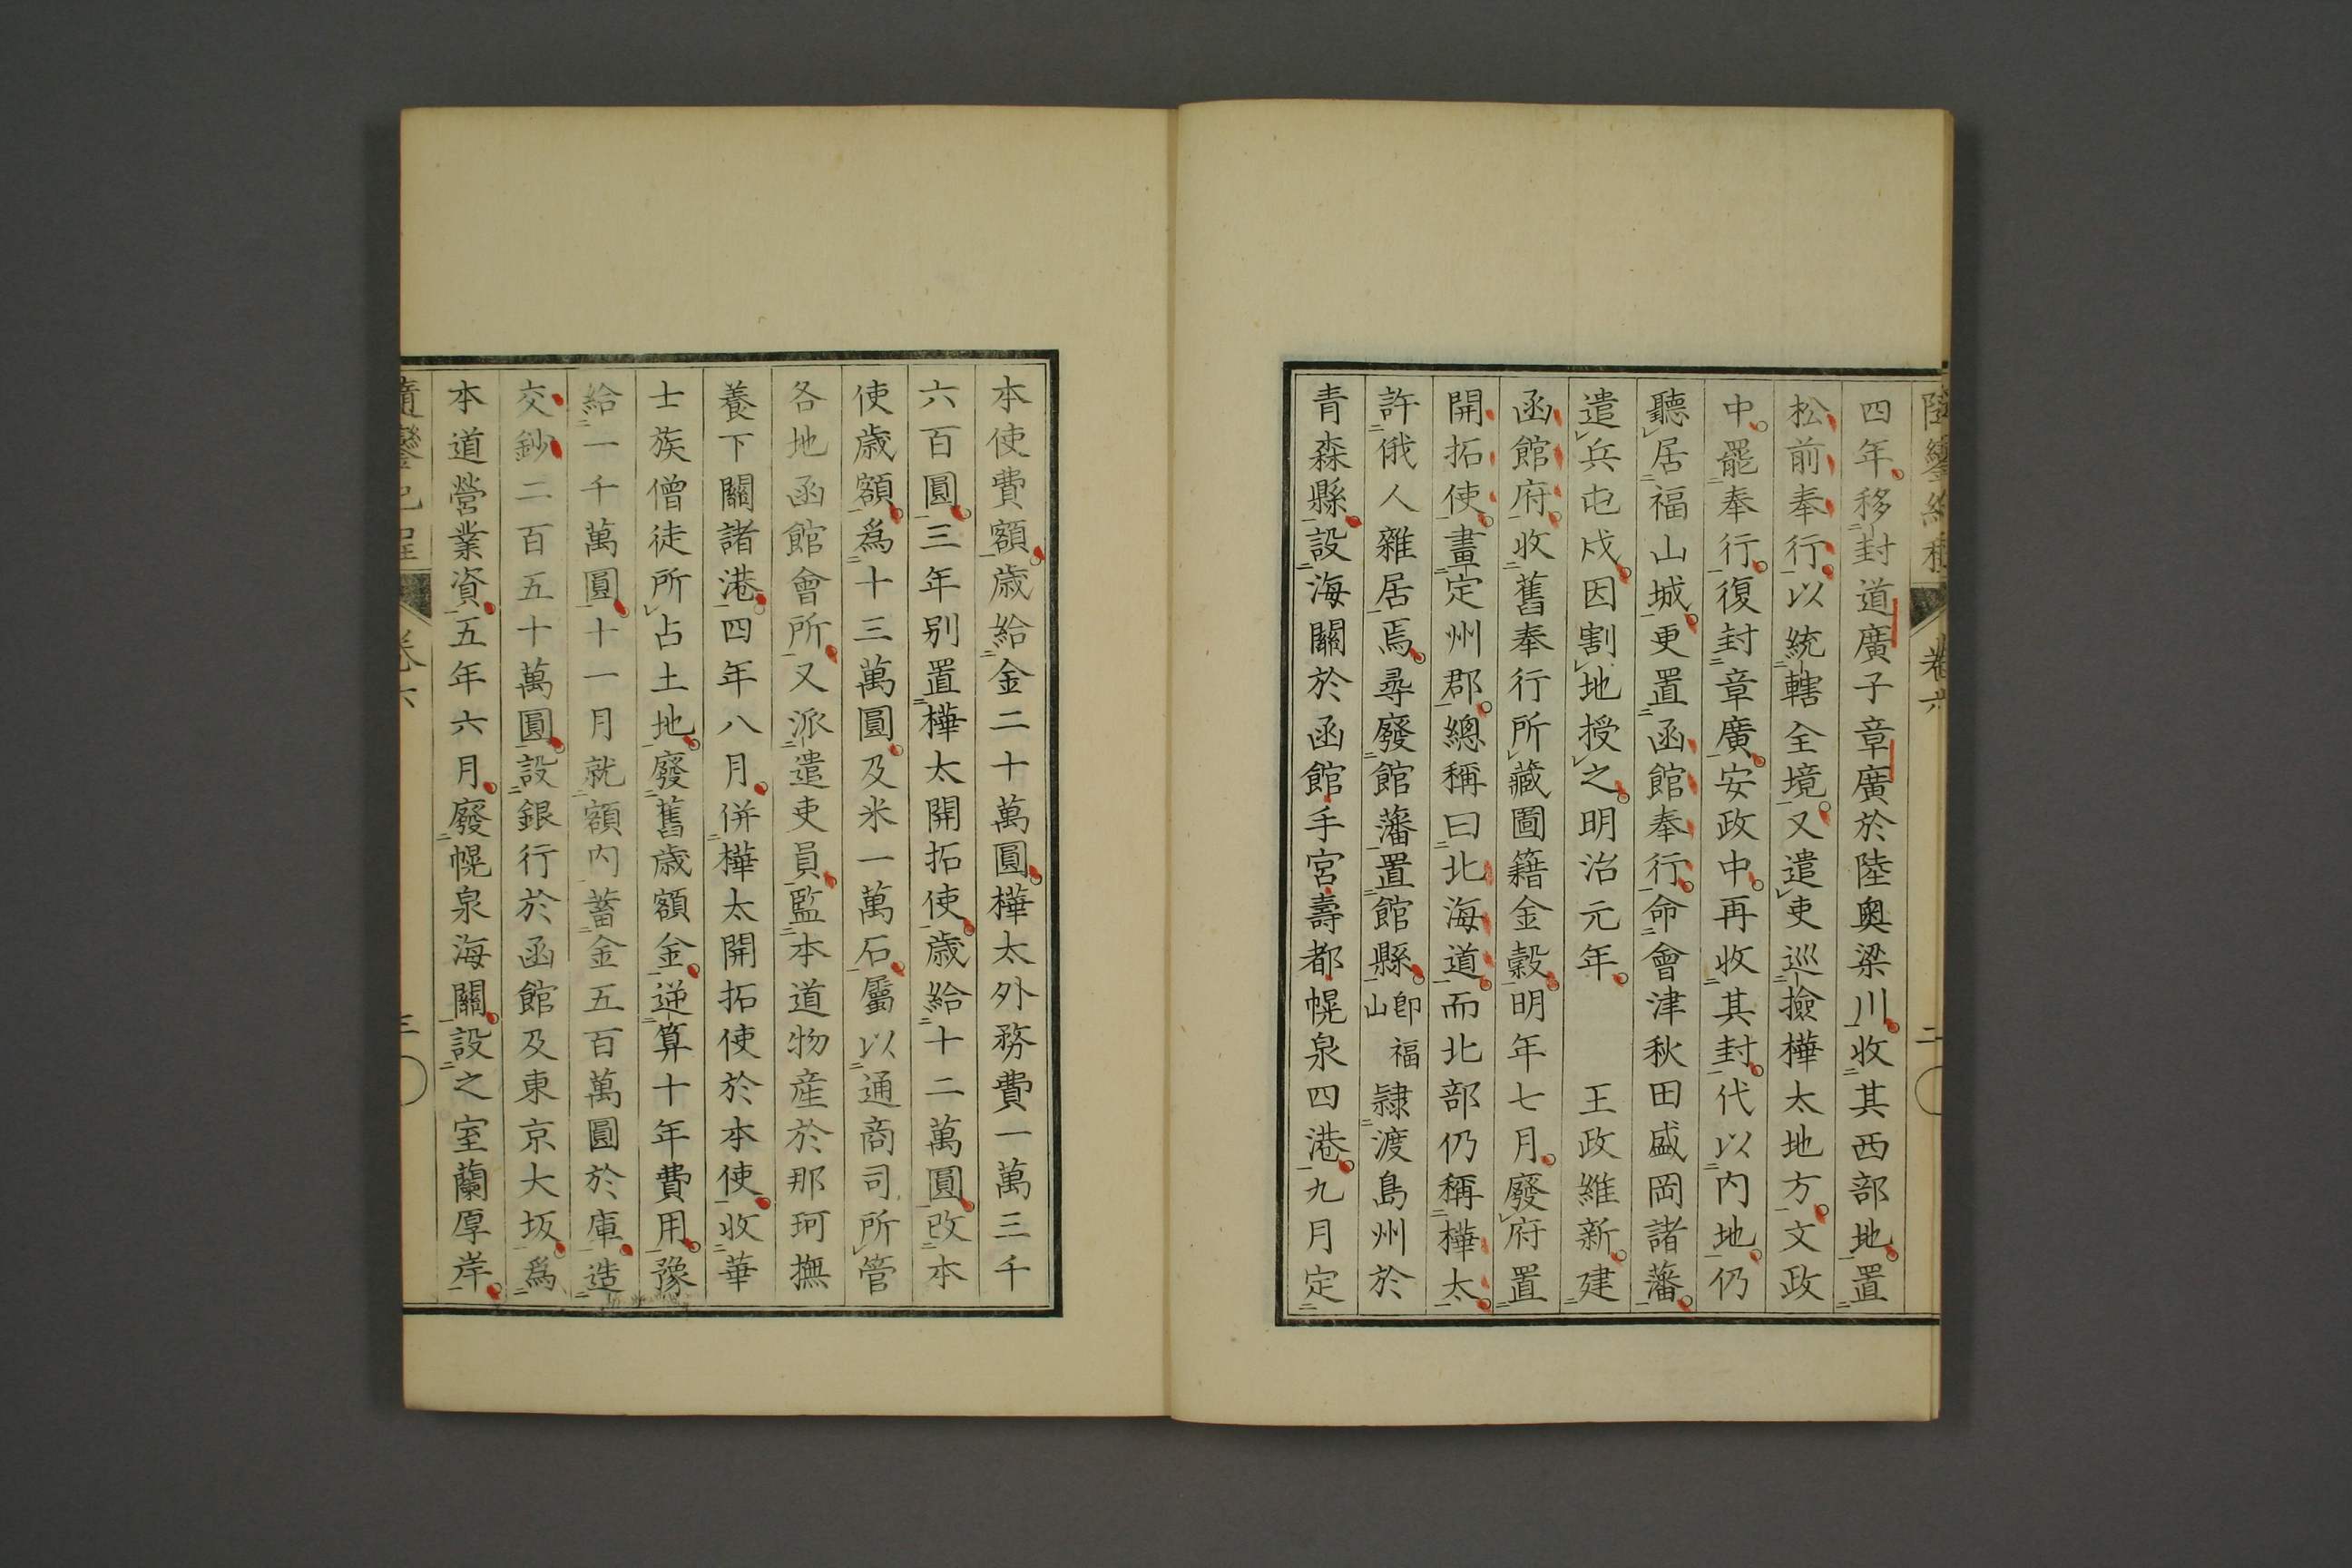 四年移封道廣子章廣於陸奧梁川收其西部地置
松前奉行以統轄全境又遣吏巡撿樺太地方文政
中罷奉行復封章廣安政中再收其封代以内地仍
聽居福山城更置函館奉行命會津秋田盛岡諸藩
遣兵屯戍因割地授之明治元年　王政維新建
函館府收舊奉行所藏圖籍金穀明年七月廢府置
開拓使畫定州郡總稱曰北海道而北部仍稱樺太
許俄人雜居焉尋廢館藩置館縣即福山隷渡島州於
青森縣設海關於函館手宮壽都幌泉四港九月定
本使費額歲給金二十萬圓樺太外務費一萬三千
六百圓三年別置樺太開拓使歲給十二萬圓改本
使歲額爲十三萬圓及米一萬石屬以通商司所管
各地函館會所又派遣吏員監本道物産於那珂撫
養下關諸港四年八月併樺太開拓使於本使收華
士族僧徒所占土地廢舊歲額金逆算十年費用豫
給一千萬圓十一月就額内蓄金五百萬圓於庫造
交鈔二百五十萬圓設銀行於函館及東京大坂爲
本道營業資五年六月廢幌泉海關設之室蘭厚岸
卷六
三